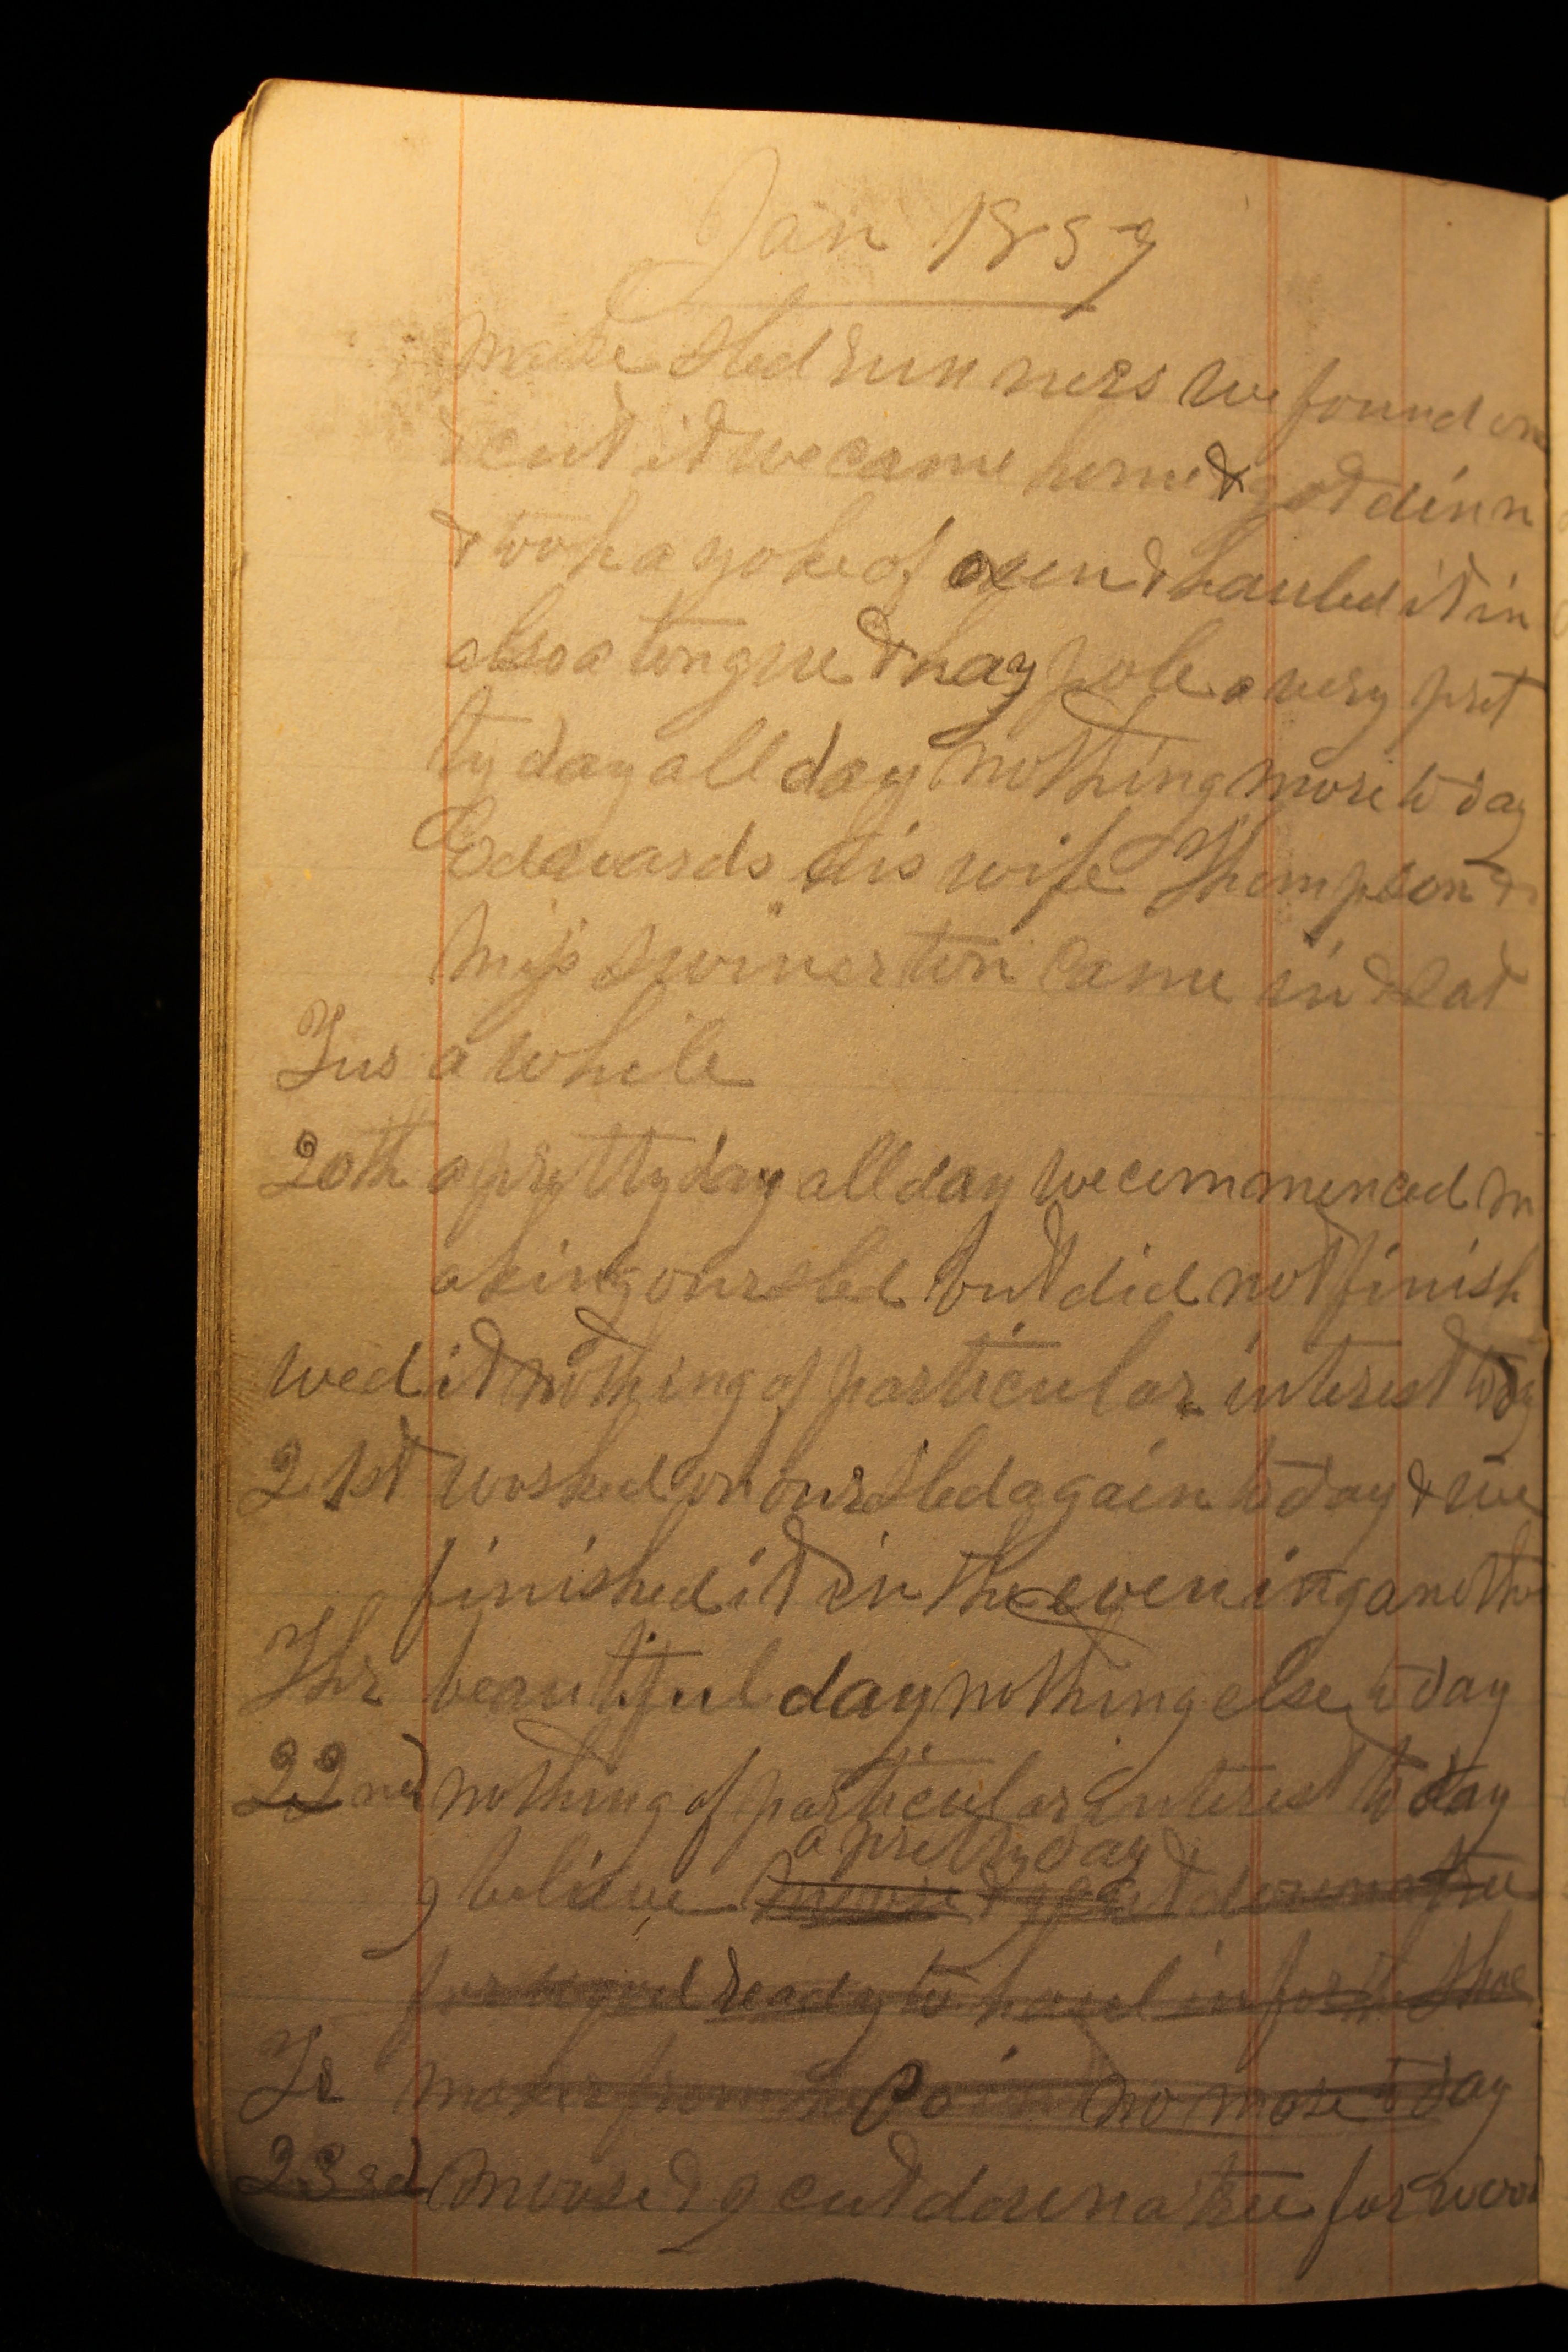 Jan 1857
make sled runners we found on
& cut it we came home & got dinn
& took a yoke of oxen & hauled it in
also a tongue & hay pole a very pret
ty day all day nothing more to day
Edawards & his wife Thompson &
Miss Swinerton came in & sat
Tus a while
20th a pretty day all day we commenced m
aking our sled but did not finish
Wed it nothing of particular interest to day
21st worked on our sled again to day & we
finished it in the evening another
Thr beautiful day nothing else to day
22nd nothing of particular interest to day
a pretty day
I believe Moose & I cut down a tree
for wood ready to haul in for the Shoe
Fr maker from the no more to day
23rd Moose & I cut down a tree for wood